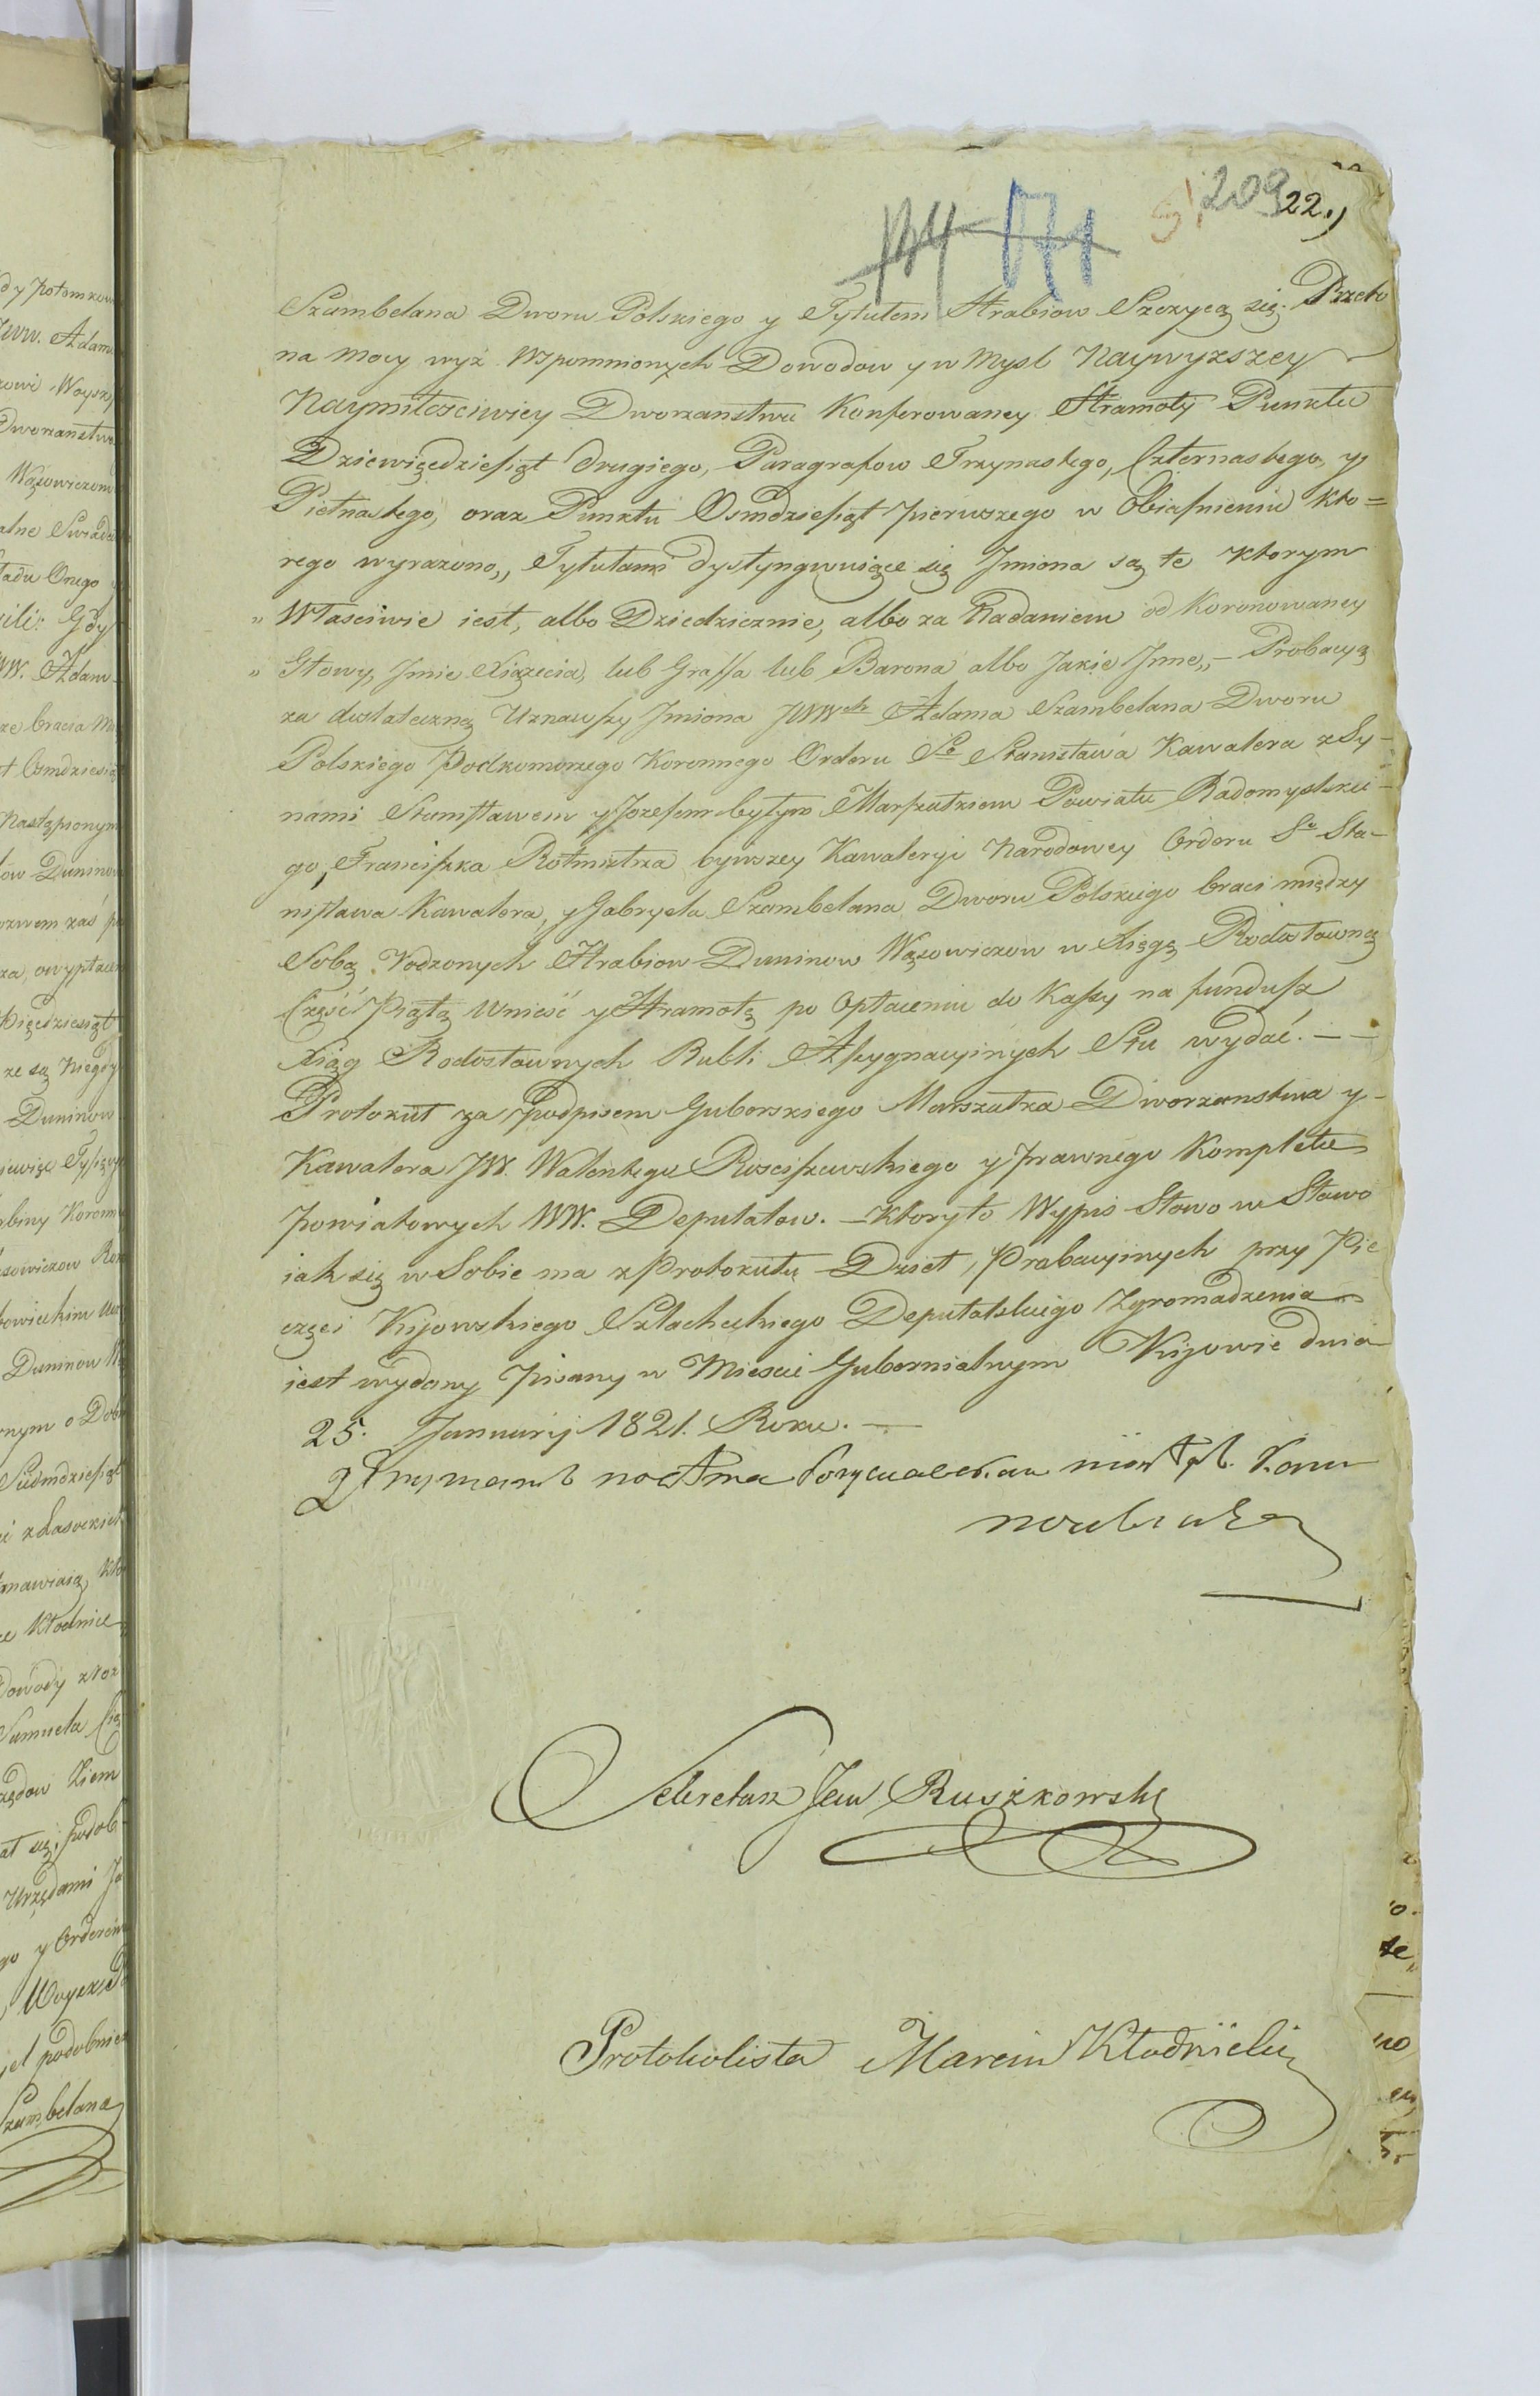 209
22.,
174 171
Szambelana Dworu Polskiego y Tytułem Hrabiow Szczycą się. Przeto
na mocy wyż Wspomnionych Dowodow y w Mysl Naywyższey
Naymiłosciwiey Dworzanstwu Konferowaney Hramoty Punktu
Dziewięcdziesiąt drugiego, Paragrafow Trzynastego, Czternastego, y
Pietnastego, oraz Punktu Osmdziesiąt pierwszego w Obiasnieniu kto=
rego wyrażono,, Tytułami dystyngwuiące się Imiona są te ktorym
„ Własciwie iest, albo Dziedzicznie, albo za Nadaniem od Koronowaney
„ Głowy, Jmie Xiążecia, lub Graffa lub Barona albo Jakie Jnne,, – Probacyą
za dostateczną Uznawszy Jmiona JWWch Adama Szambelana Dworu
Polskiego Podkomorzego Koronnego Orderu So Stanisława Kawalera z Sy-
nami Stanisławem y Jozefem byłym Marszałkiem Powiatu Radomyslskie-
go, Franciszka Rotmistrza bywszey Kawaleryi Narodowey Orderu So Sta-
nisława Kawalera, y Gabryela Szambelana Dworu Polskiego braci między
Sobą Rodzonych Hrabiow Duninow Wąsowiczow w Xięgę Rodosławną
Część Piątą Wnieść y Hramotę po Opłaceniu do Kassy na fundusz
Xiąg Rodosławnych Rubli Assygnacyinych Stu wydać. — —
Protokuł za podpisem Guberskiego Marszałka Dworzanstwa y
Kawalera JW. Walentego Rosciszewskiego y prawnego Kompletu
powiatowych WW. Deputatow. — Ktory to Wypis Słowo w Słowo
iak się w Sobie ma z Protokułu Dzieł, Probacyinych przy Pie
częci Kijowskiego Szlacheckiego Deputatskiego Zgromadzenia
iest wydany Pisany w Miescie Gubernialnym Kijowie dnia
25. Januarij 1821. Roku. —
Sekretarz Jan Ruszkowski
Protokolista Marcin Kłodnicki